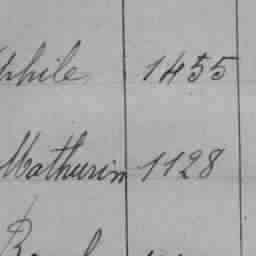 phile 1455
Mathurin 1128